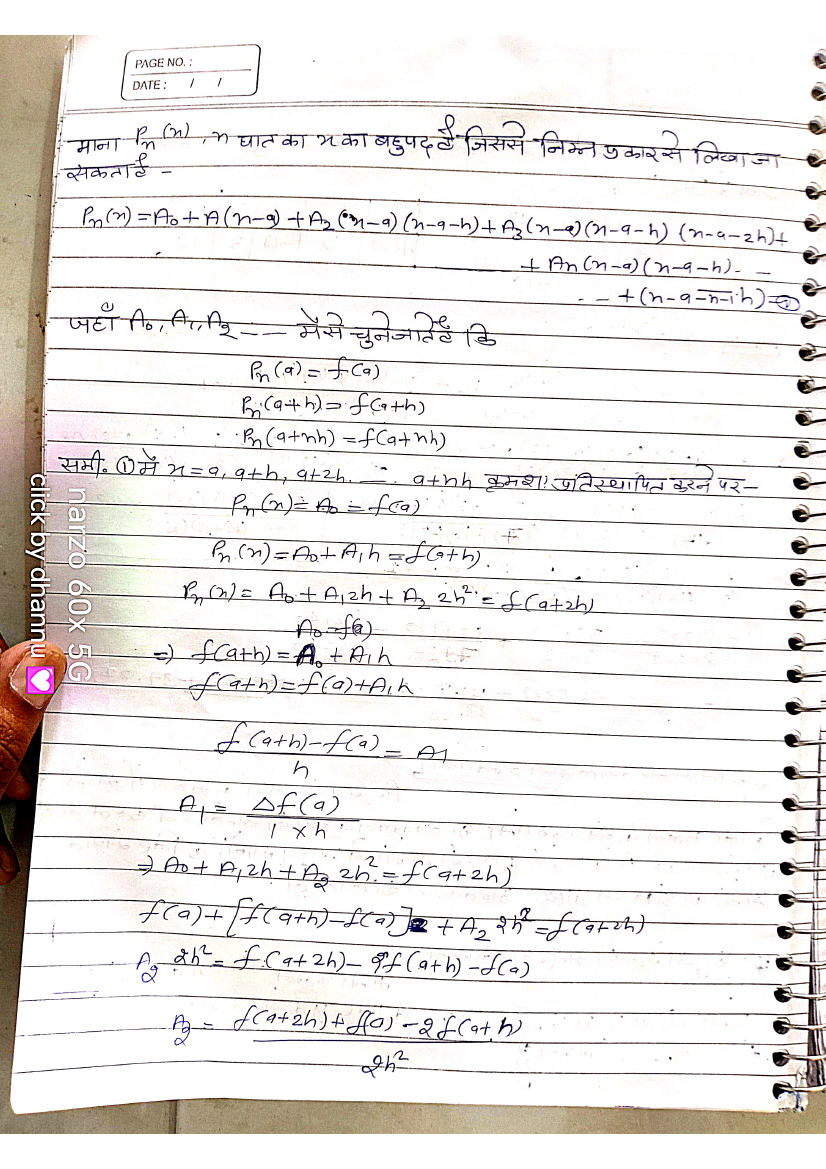 PAGE NO. :
DATE : / /
माना Pn(x), n घात का x का बहुपद है जिससे निम्न प्रकार से लिखा जा
सकता है -
Pn(x) = A0 + A(x-a) + A2(x-a)(x-a-h) + A3(x-a)(x-a-h)(x-a-2h)+
+ An(x-a)(x-a-h). -
. - + (x-a-n-1.h) = ①
जहाँ A0, A1, A2 - - - मैंसे चुने जाते है कि
Pn(a) = f(a)
Pn(a+h) = f(a+h)
Pn(a+nh) = f(a+nh)
समी. ① में x = a, a+h, a+2h. - . a+nh क्रमशः प्रतिस्थापित करने पर -
Pn(x) = A0 = f(a)
Pn(x) = A0 + A1h = f(a+h).
Pn(x) = A0 + A12h + A2 2h² = f(a+2h)
A0 = f(a)
=) f(a+h) = A0 + A1h
f(a+h) = f(a) + A1h
f(a+h) - f(a) = A1
h
A1 = Δf(a)
1 × h
⇒ A0 + A12h + A2 2h² = f(a+2h)
f(a) + [f(a+h) - f(a)]2 + A2 2h² = f(a+2h)
A2 2h² = f(a+2h) - 2f(a+h) - f(a)
A2 = f(a+2h) + f(a) - 2f(a+h)
2h²
narzo 60x 5G
click by dhannu